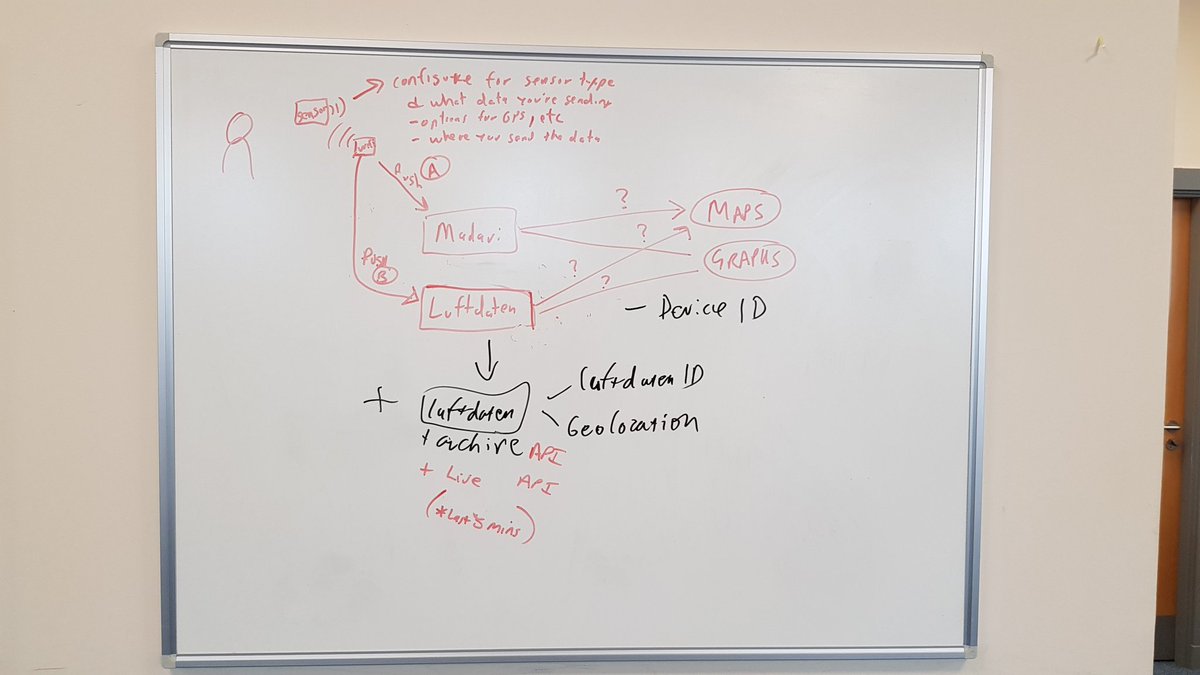 configure for sensor type
sensor
& what data you're sending
- options for GPS, etc
- where you send the data
Push A
? MAPS
Madavi
?
GRAPHS
PUSH
B
?
?
Luftdaten
- Device ID
luftdaten ID
+ luftdaten
Geolocation
+ archive API
+ Live API
(*Last 5 mins)